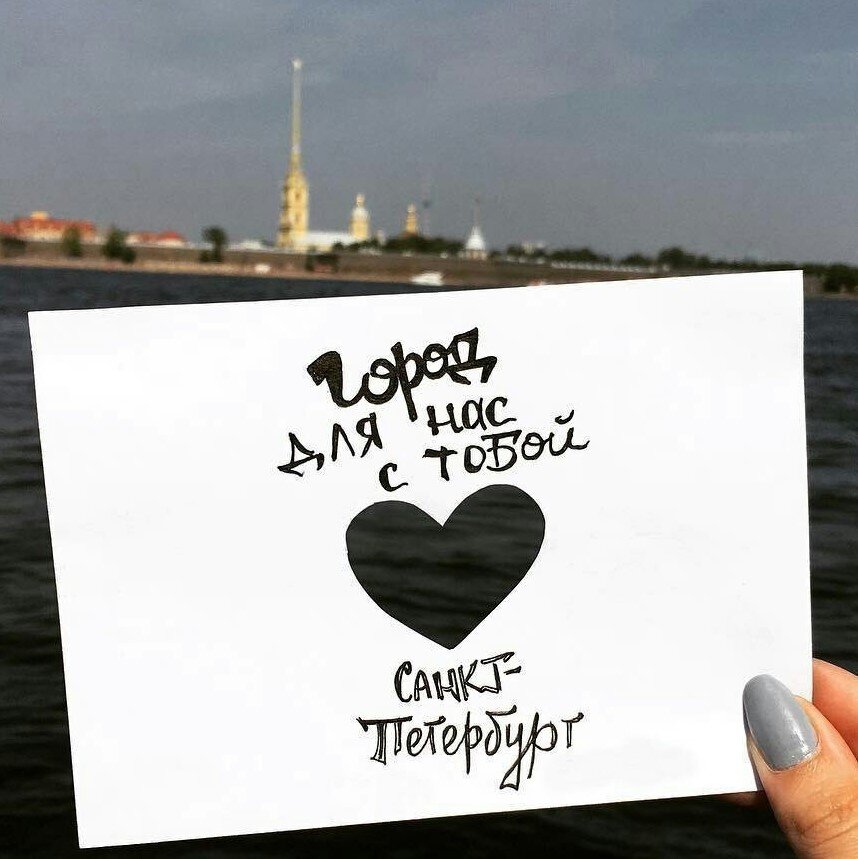 Город
для нас
с тобой
Санкт-
Петербург